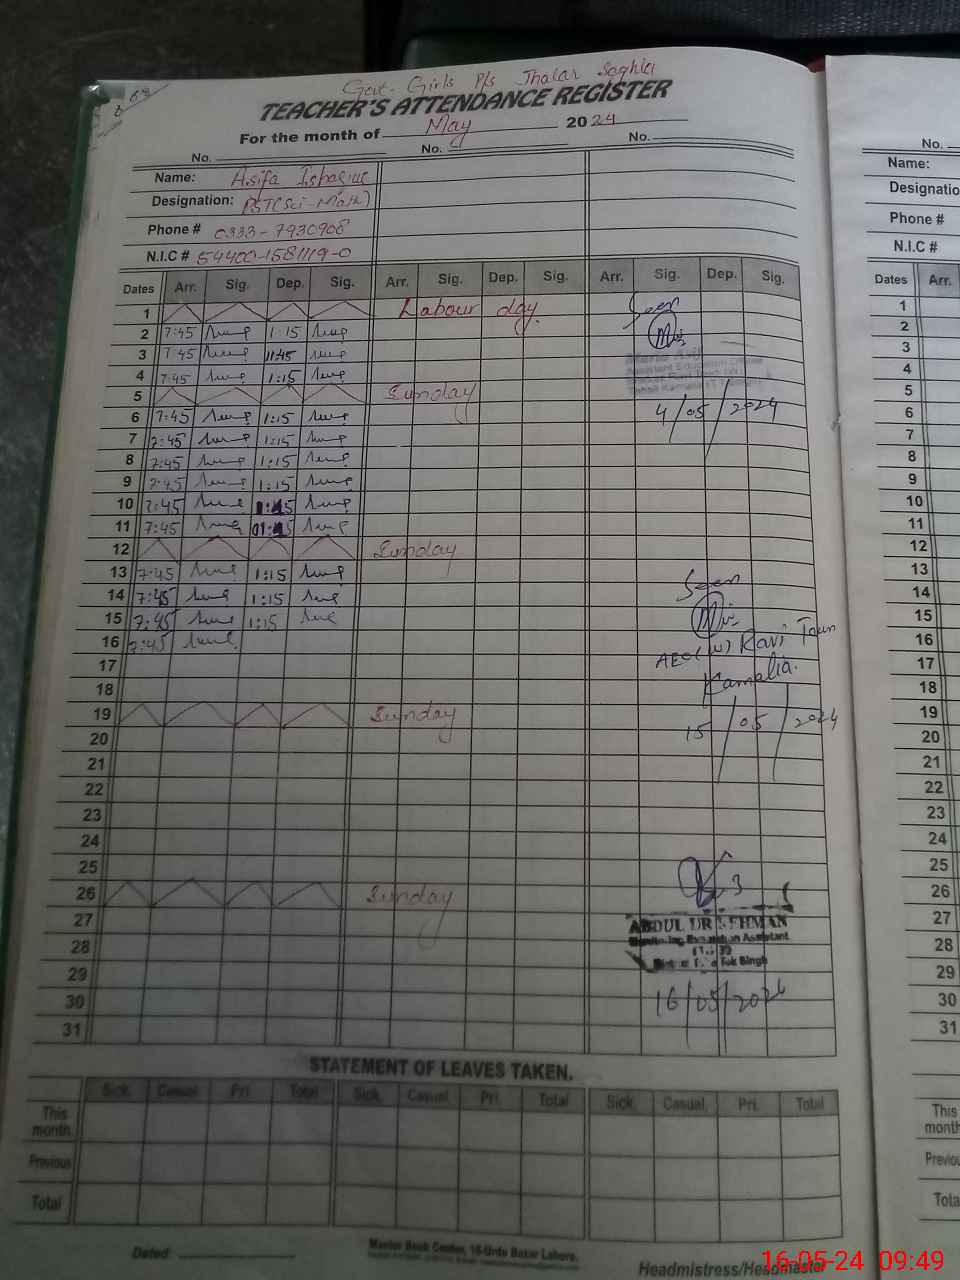 Govt. Girls P/s Jhalar Saghla
TEACHER'S ATTENDANCE REGISTER
For the month of May 2024
No. No. No.
Name: Asifa Ishaque
Designation: PST(Sci-Math)
Phone # 0333-7930908
N.I.C # 54400-1581119-0
Dates Arr. Sig. Dep. Sig. Arr. Sig. Dep. Sig. Arr. Sig. Dep. Sig.
1 Labour day. Seen
2 7:45 1:15
3 7:45 11:45
4 7:45 1:15
5 Sunday
4/05/2024
6 7:45 1:15
7 7:45 1:15
8 7:45 1:15
9 7:45 1:15
10 7:45
11 7:45
12 Sunday
13 7:45 1:15 Seen
14 7:45 1:15
15 7:45 1:15
16 7:45 AEO(W) Ravi Town
17 Kamalia.
18
19 Sunday 15/05/2024
20
21
22
23
24
25
26 Sunday
27 ABDUL REHMAN
28 Assistant
29 Tek Singh
30 16/05/2024
31
STATEMENT OF LEAVES TAKEN.
Sick. Casual Pri. Total Sick. Casual. Pri. Total Sick. Casual. Pri. Total
This month
Previous
Total
Dated:
Master Book Center, 16-Urdu Bazar Lahore.
Headmistress/Headmaster
No.
Name:
Designatio
Phone #
N.I.C #
Dates Arr.
1
2
3
4
5
6
7
8
9
10
11
12
13
14
15
16
17
18
19
20
21
22
23
24
25
26
27
28
29
30
31
This month
Previou
Tota
16-05-24 09:49